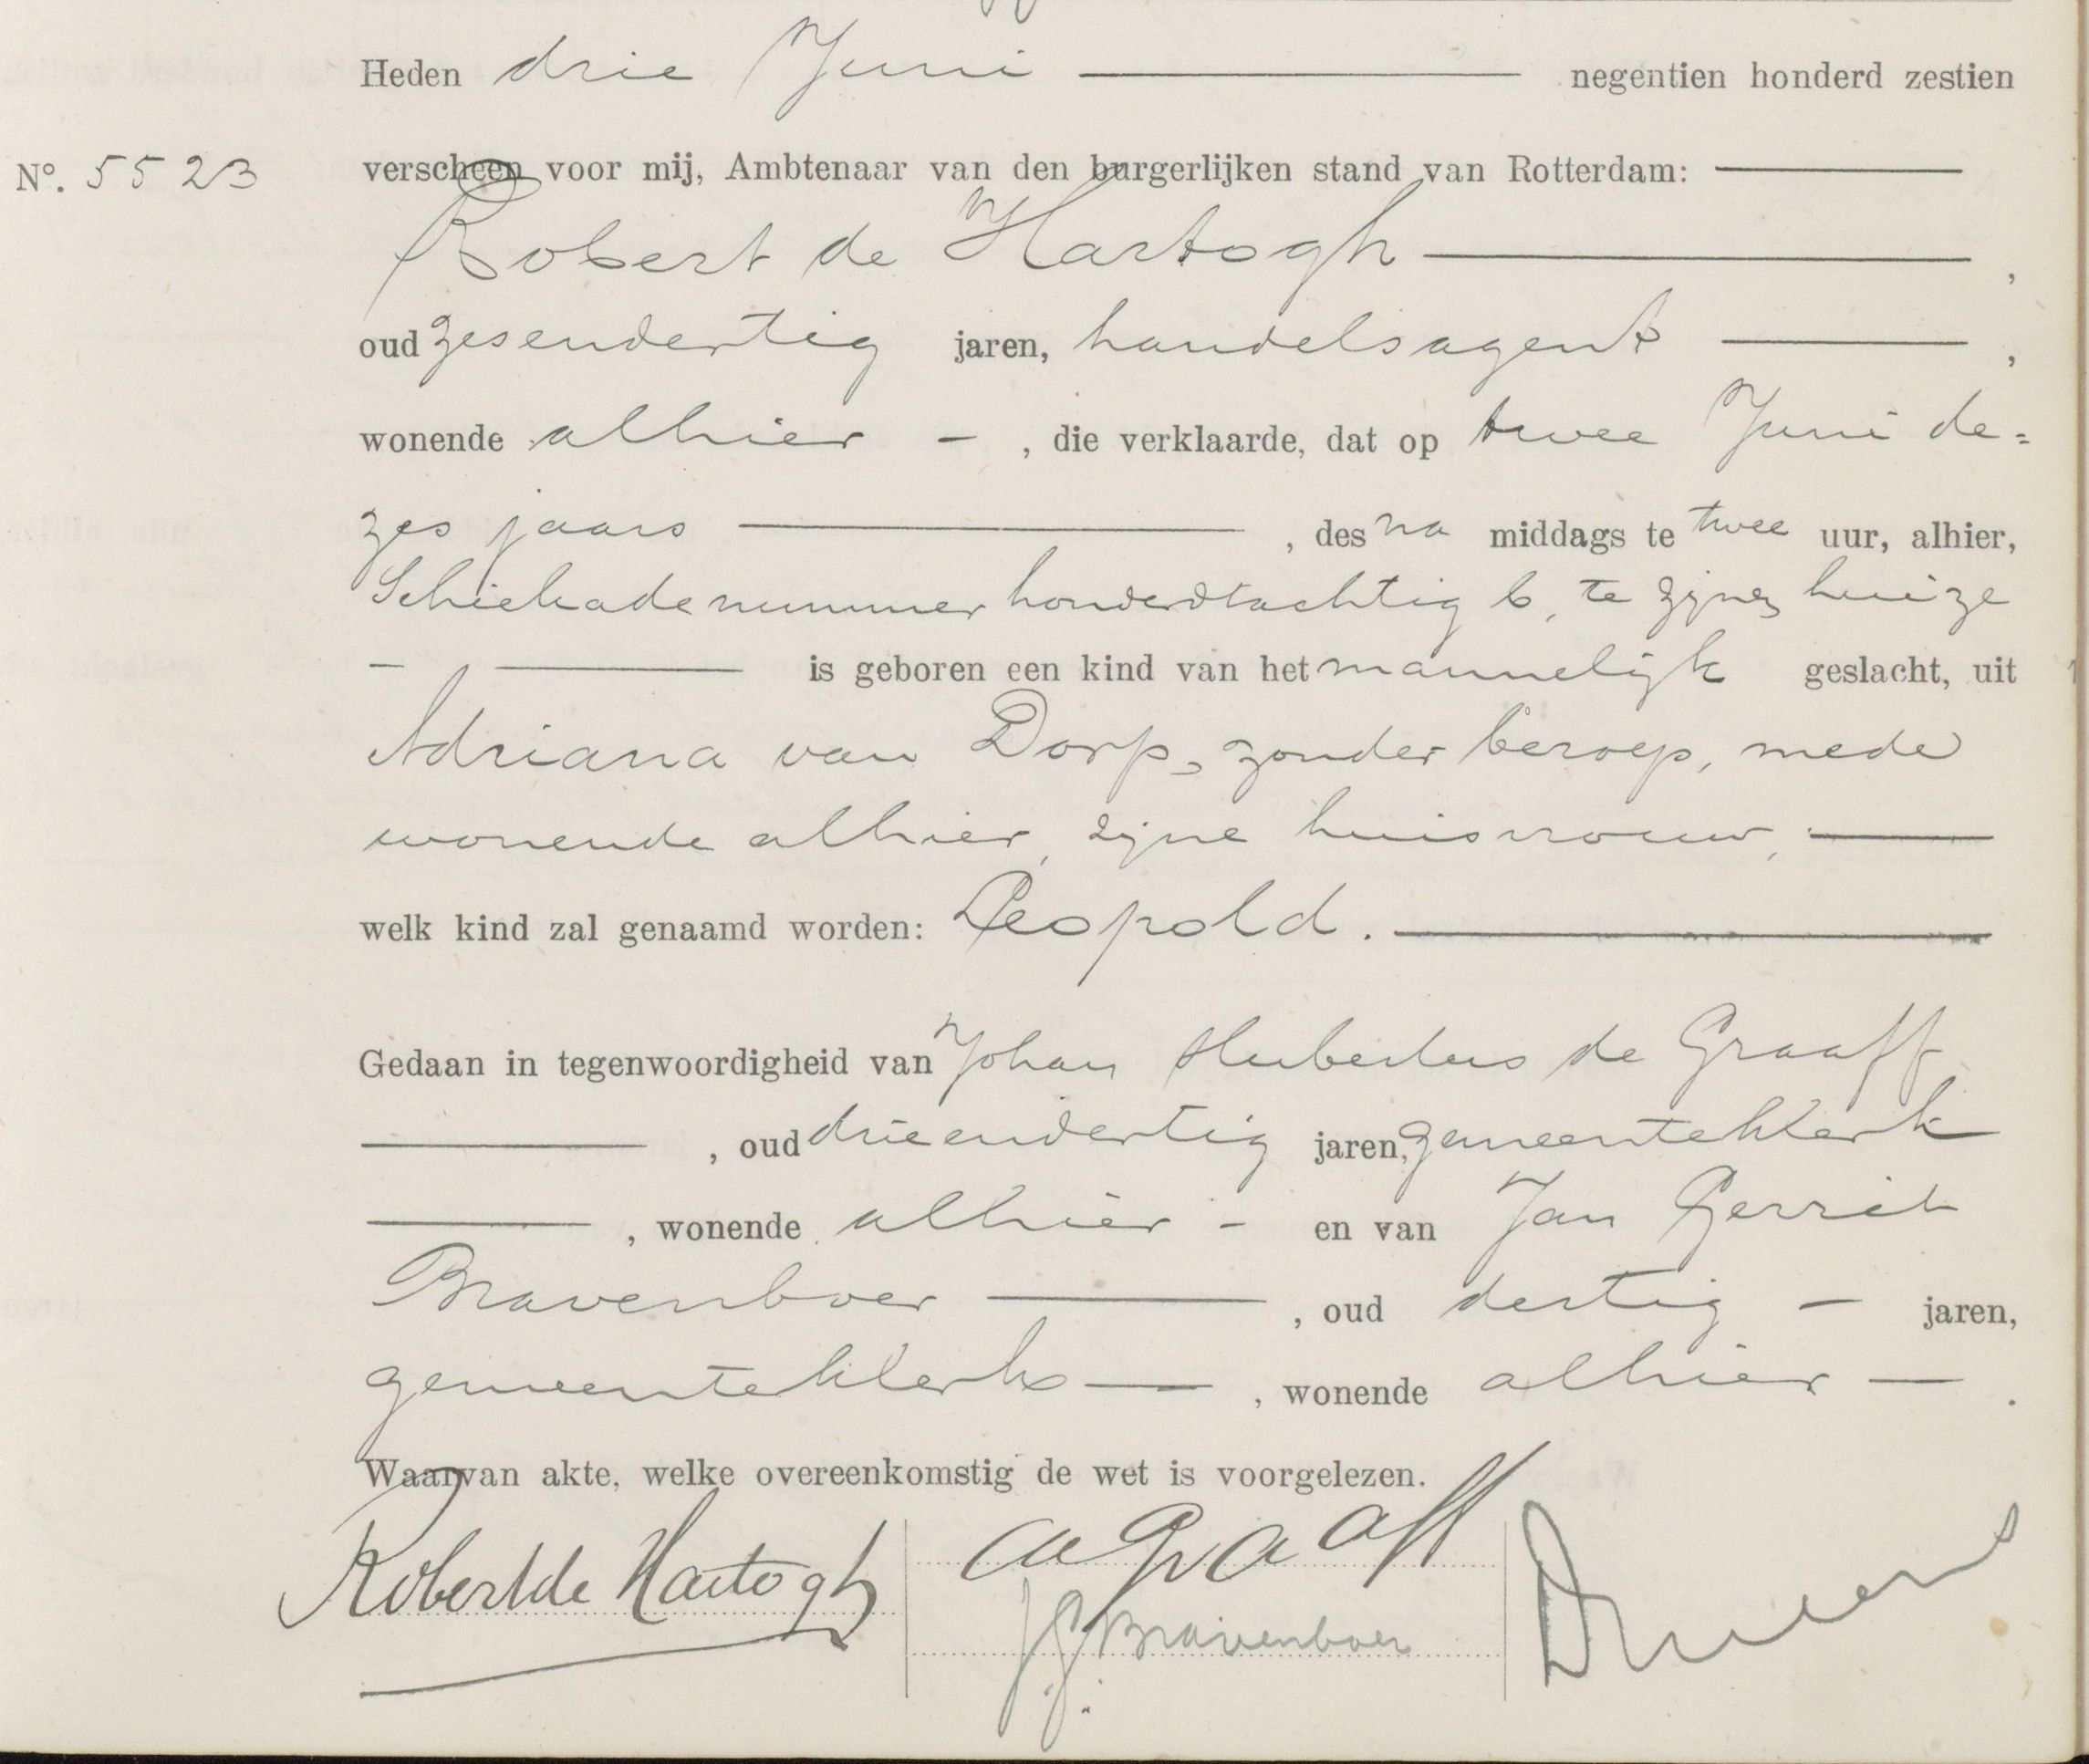 Heden drie Juni negentien honderd zestien
No. 5523 verscheen voor mij, Ambtenaar van den burgerlijken stand van Rotterdam:
Robert de Hartogh,
oud zesendertig jaren, handelsagent,
wonende alhier -, die verklaarde, dat op twee Juni de=
zes jaars, des na middags te twee uur, alhier,
Schiekade nummer honderdtachtig b, te zijnen huize
- is geboren een kind van het mannelijk geslacht, uit
Adriana van Dorp, zonder beroep, mede
wonende alhier, zijne huisvrouw,
welk kind zal genaamd worden: Leopold.
Gedaan in tegenwoordigheid van Johan Hubertus de Graaff
, oud drieendertig jaren, gemeenteklerk
, wonende alhier - en van Jan Gerrit
Bravenboer, oud dertig - jaren,
gemeenteklerk, wonende alhier.
Waarvan akte, welke overeenkomstig de wet is voorgelezen.
Robert de Hartogh
de Graaff
JG Bravenboer